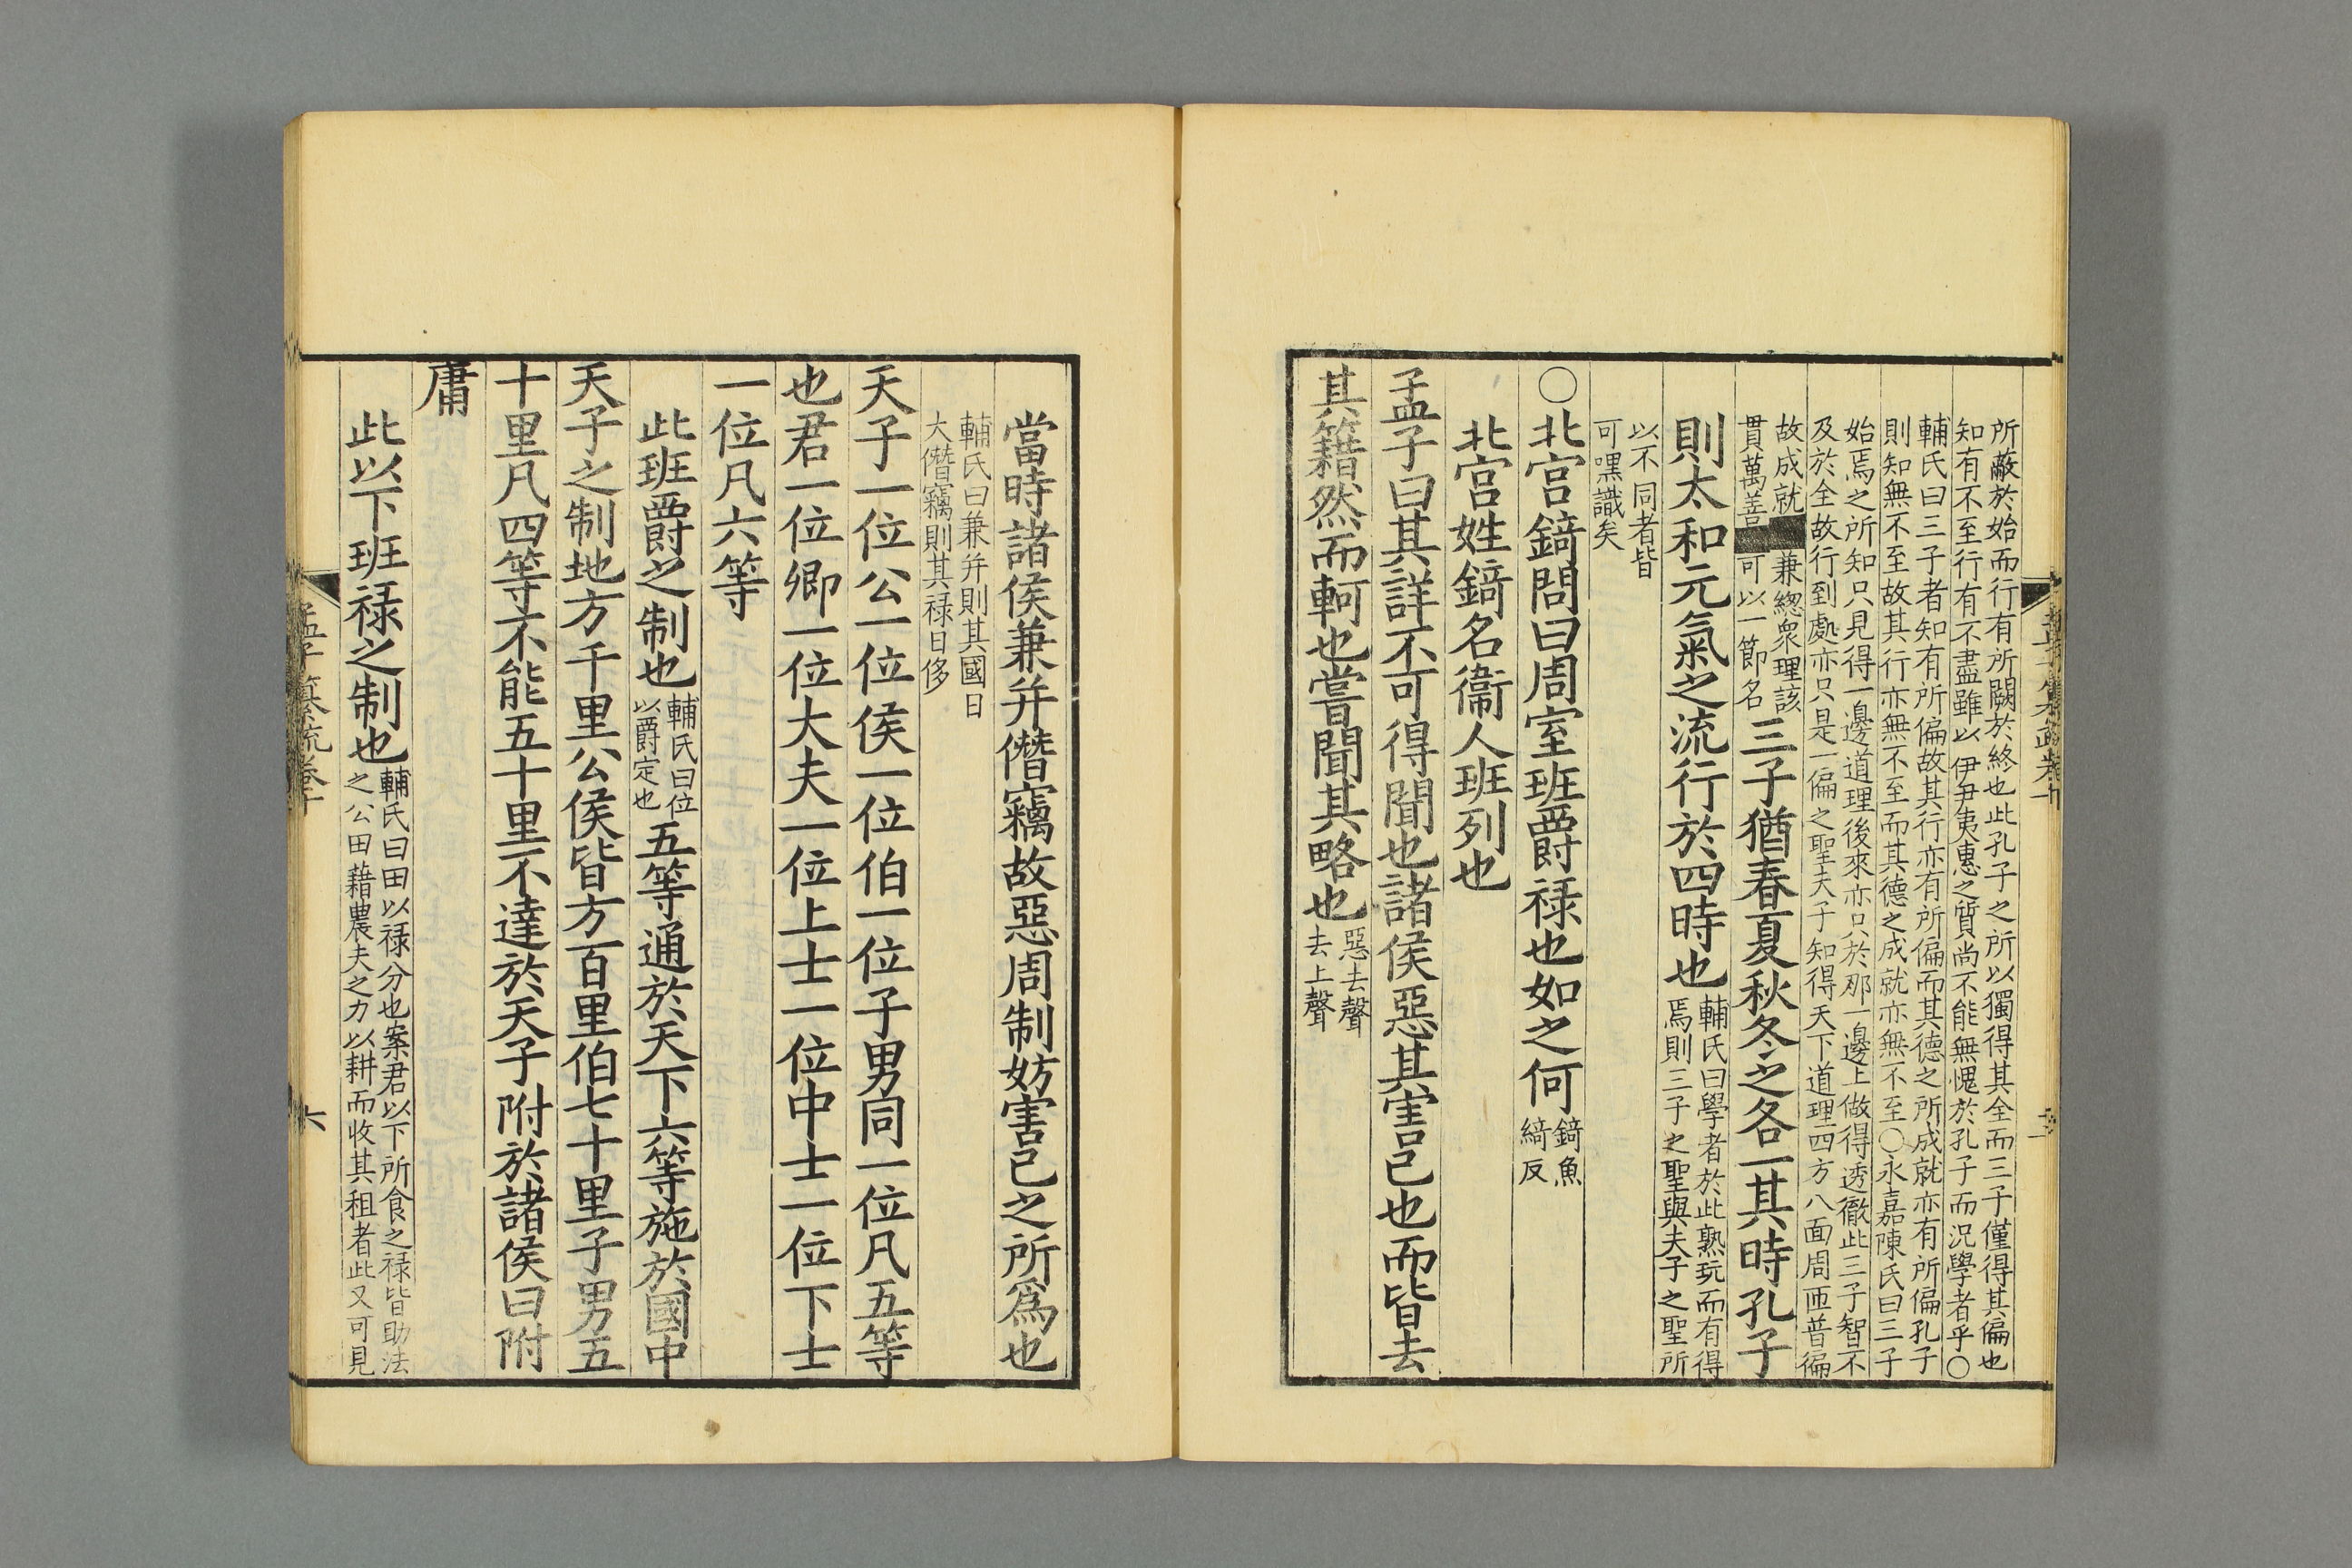 所蔽於始而行有所闕於終也此孔子之所以獨得其全而三子僅得其偏也
知有不至行有不盡雖以伊尹夷惠之質尚不能無愧於孔子而況學者乎〇
輔氏曰三子者知有所偏故其行亦有所偏而其德之所成就亦有所偏孔子
則知無不至故其行亦無不至而其德之成就亦無不至〇永嘉陳氏曰三子
始焉之所知只見得一邊道理後來亦只於那一邊上做得透徹此三子智不
及於全故行到處亦只是一偏之聖夫子知得天下道理四方八面周匝普徧
故成就
貫萬善
兼緫衆理該
可以一節名
三子猶春夏秋冬之各一其時孔子
則太和元氣之流行於四時也
輔氏曰學者於此熟玩而有得
焉則三子之聖與夫子之聖所
以不同者皆
可嘿識矣
〇北宮錡問曰周室班爵禄也如之何
錡魚
綺反
北宮姓錡名衞人班列也
孟子曰其詳不可得聞也諸侯惡其害己也而皆去
其籍然而軻也嘗聞其略也
惡去聲
去上聲
當時諸侯兼并僭竊故惡周制妨害己之所爲也
輔氏曰兼并則其國日
大僭竊則其禄日侈
天子一位公一位侯一位伯一位子男同一位凡五等
也君一位卿一位大夫一位上士一位中士一位下士
一位凡六等
此班爵之制也
輔氏曰位
以爵定也
五等通於天下六等施於國中
天子之制地方千里公侯皆方百里伯七十里子男五
十里凡四等不能五十里不達於天子附於諸侯曰附
庸
此以下班禄之制也
輔氏曰田以禄分也案君以下所食之禄皆助法
之公田藉農夫之力以耕而收其租者此又可見
孟子纂疏卷十
六